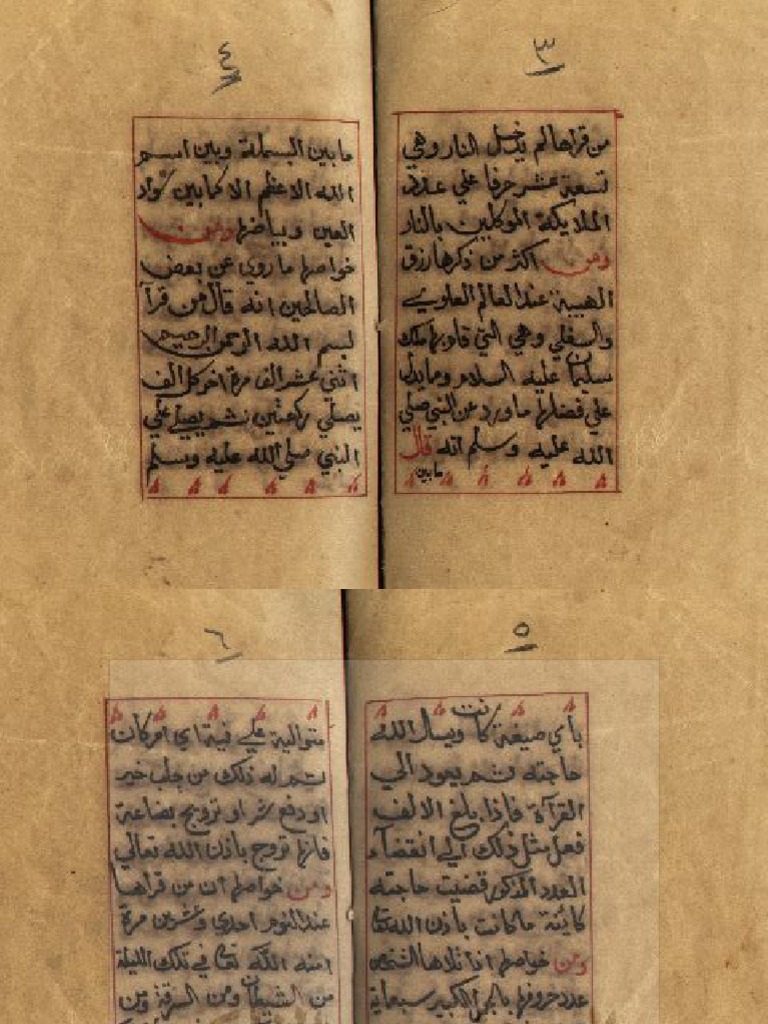 ٣
من قراها لم يدخل النار وهي
تسعة عشر حرفا علي عدد
الملايكة الموكلين بالنار
ومن اكثر من ذكرها رزق
الهيبة عند العالم العلوي
والسفلي وهي التي قام بها ملك
سليمان عليه السلام ومما يدل
علي فضلها ما ورد عن النبي صلي
الله عليه وسلم انه قال
مابين
٤
مابين البسملة وبين اسم
الله الاعظم الا كما بين سواد
العين وبياضها ومن
خواصها ما روي عن بعض
الصالحين انه قال من قرأ
بسم الله الرحمن الرحيم
اثني عشر الف مرة اخر كل الف
يصلي ركعتين ثم يصلي علي
النبي صلي الله عليه وسلم
٥
بأي صيغة كانت ويسال الله
حاجته ثم يعود الي
القرآة فاذا بلغ الالف
فعل مثل ذلك الي انقضآء
العدد المذكور قضيت حاجته
كاينة ما كانت باذن الله تعا
ومن خواصها اذا تلاها الشخص
عدد حروفها بالجمل الكبير سبعماية
٦
متوالية علي نية اي امر كان
تم له ذلك من جلب خير
او دفع شر او ترويج بضاعة
فانها تروج باذن الله تعالي
ومن خواصها ان من قراها
عند النوم احدي وعشرين مرة
امنه الله تعا في تلك الليلة
من الشيطان ومن السرقة ومن